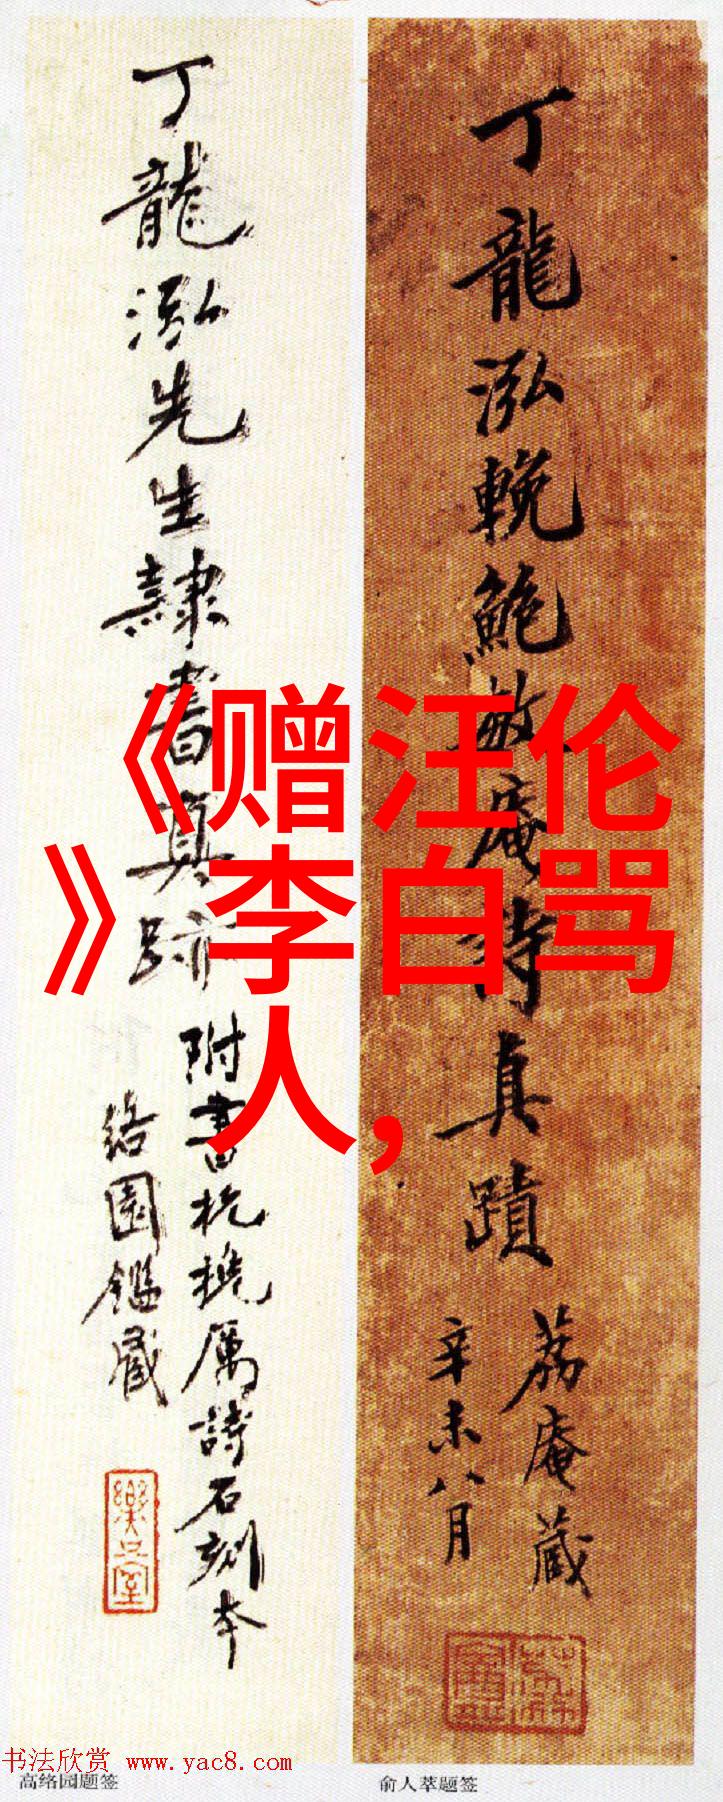 丁龍泓先生隸書真跡
附書杭撓厲詩石刻本
络園鑑藏
樂只室
丁龍泓輓鮑敦庵詩真蹟
荔庵藏
辛未八月
《赠汪伦
》李白骂
人,
书法欣赏 www.yac8.com
高络园题签
俞人萃题签